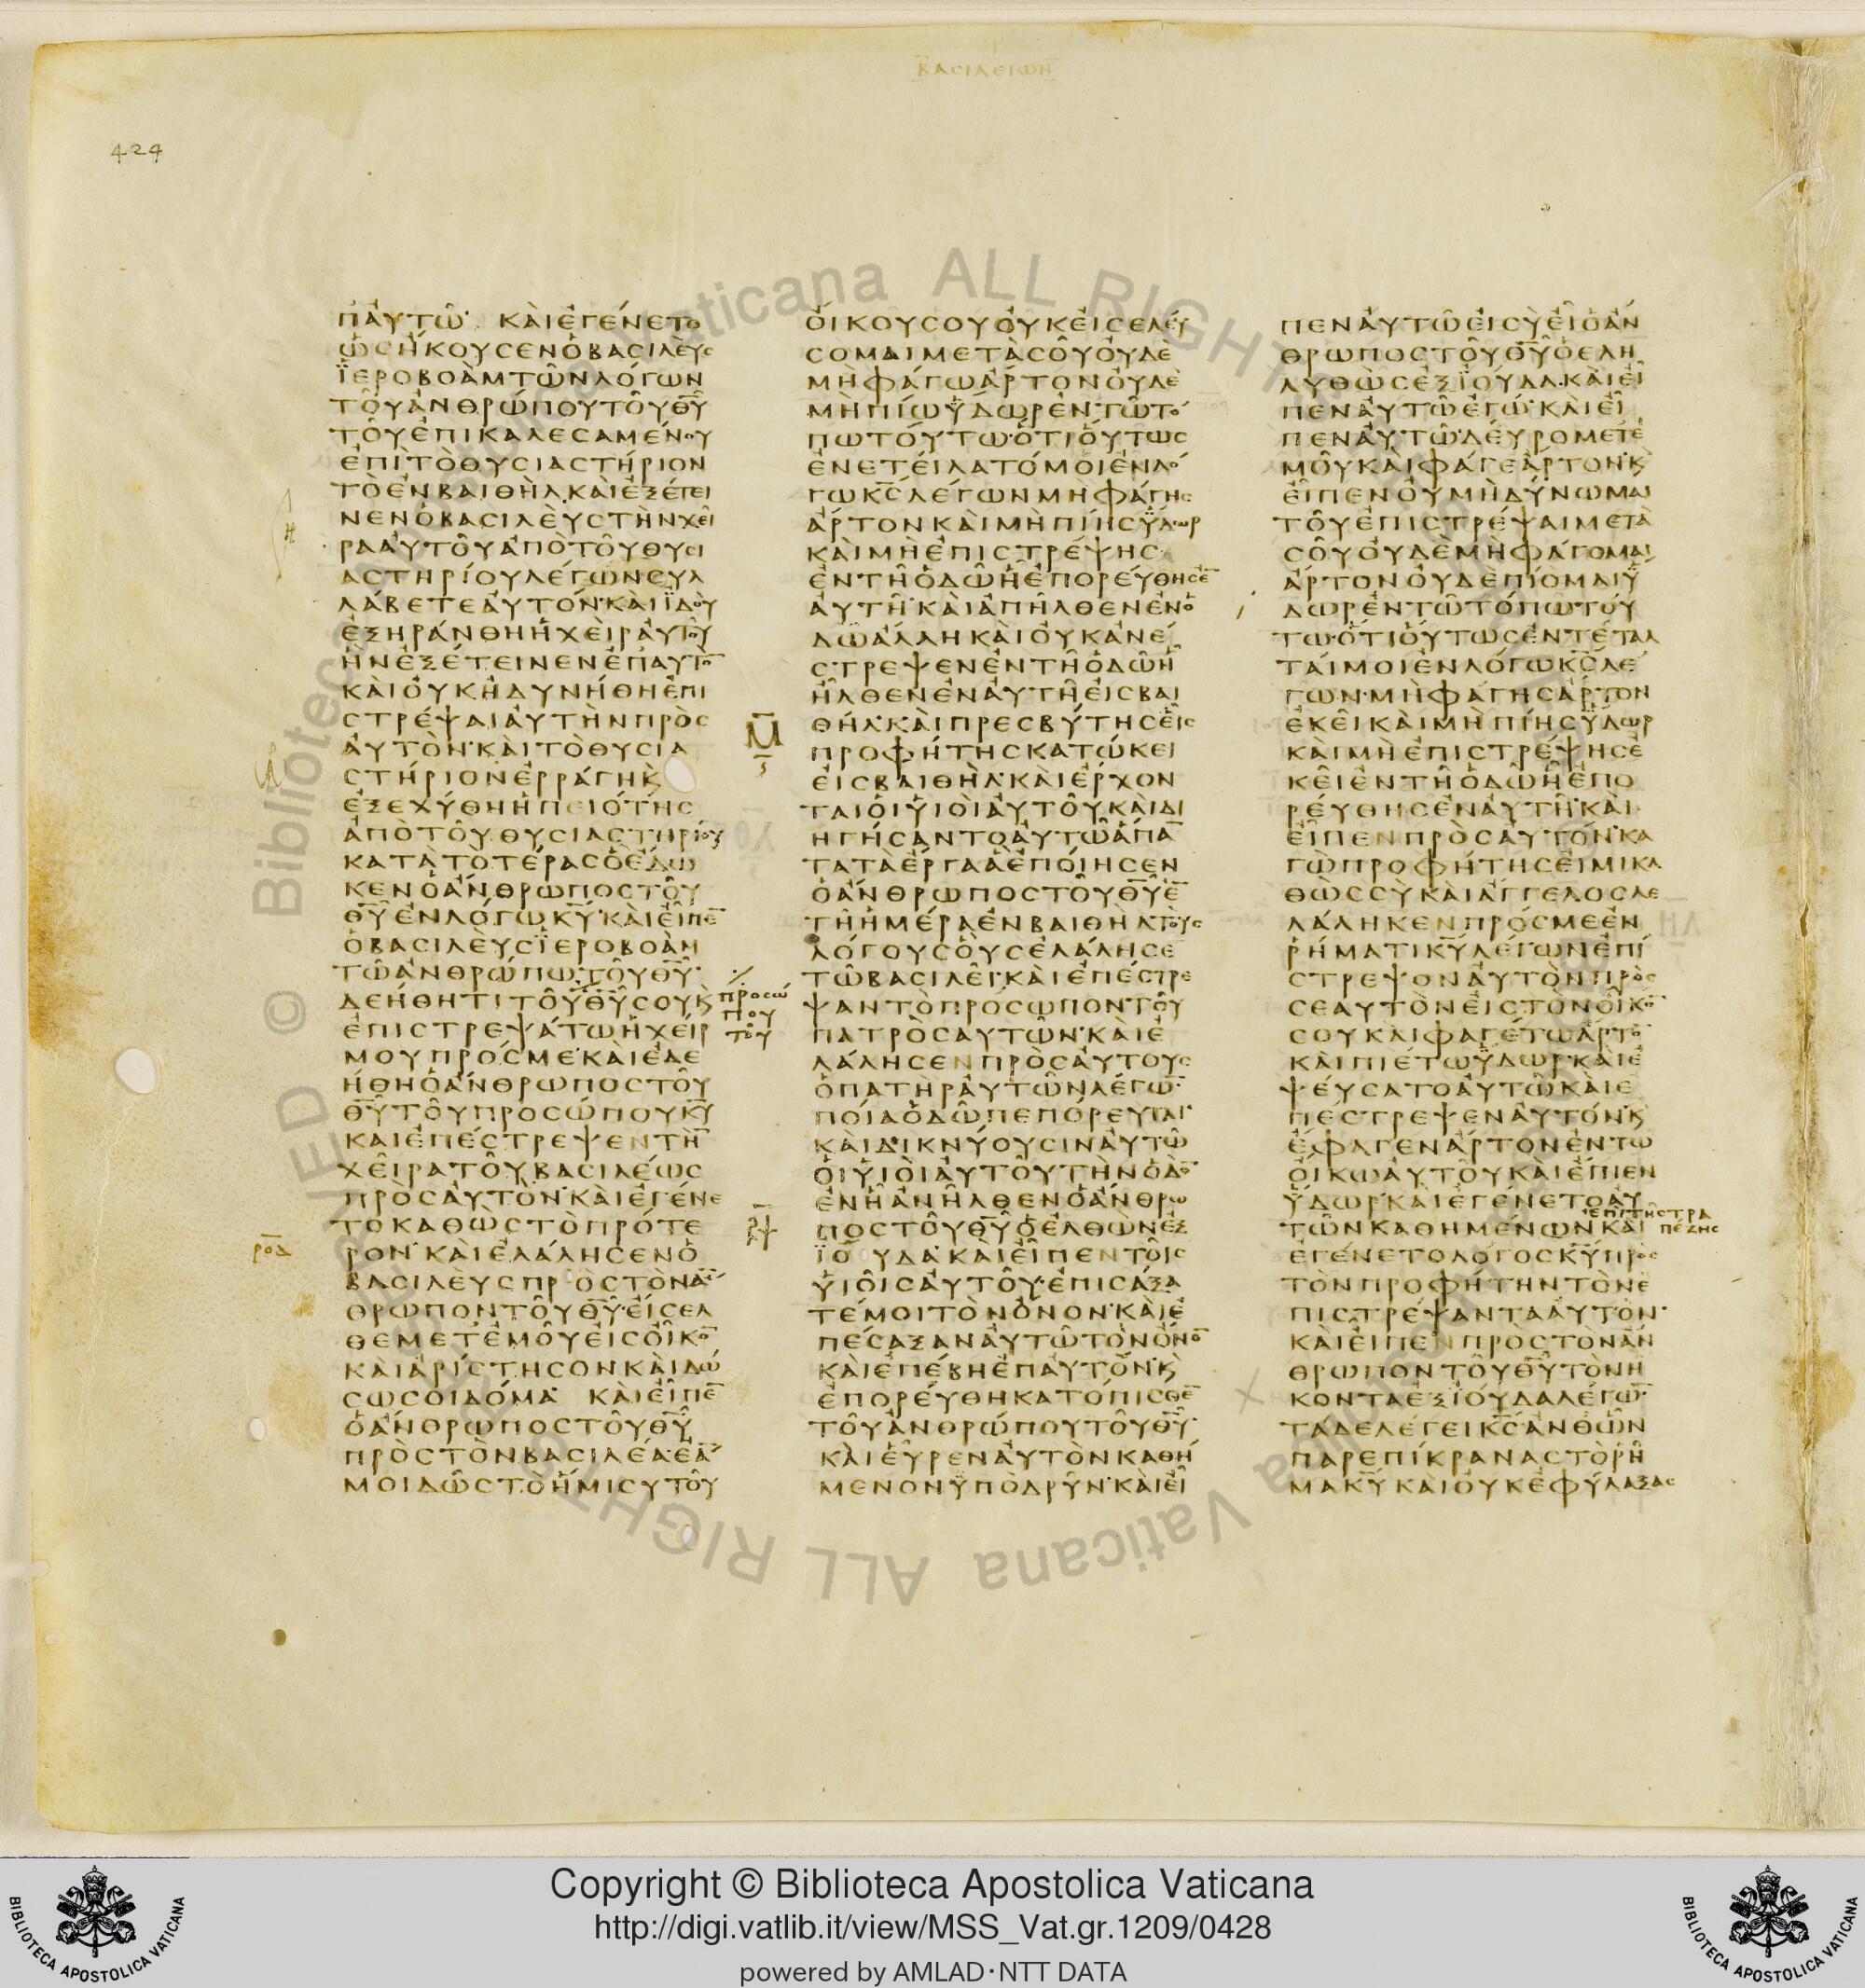 ΒΑCΙΛΕΙΩΝ
424
ΠΑΥΤΩ ΚΑΙΕΓΕΝΕΤΟ
ΩCΗΚΟΥCΕΝΟΒΑCΙΛΕΥC
ΪΕΡΟΒΟΑΜΤΩΝΛΟΓΩΝ
ΤΟΥΑΝΘΡΩΠΟΥΤΟΥΘ̅Υ̅
ΤΟΥΕΠΙΚΑΛΕCΑΜΕΝΟΥ
ΕΠΙΤΟΘΥCΙΑCΤΗΡΙΟΝ
ΤΟΕΝΒΑΙΘΗΛ·ΚΑΙΕΞΕΤΕΙ
ΝΕΝΟΒΑCΙΛΕΥCΤΗΝΧΕΙ
ΡΑΑΥΤΟΥΑΠΟΤΟΥΘΥCΙ
ΑCΤΗΡΙΟΥΛΕΓΩΝCΥΛ
ΛΑΒΕΤΕΑΥΤΟΝ·ΚΑΙΪΔΟΥ
ΕΞΗΡΑΝΘΗΗΧΕΙΡΑΥΤΟΥ
ΗΝΕΞΕΤΕΙΝΕΝΕΠΑΥΤΟ̅
ΚΑΙΟΥΚΗΔΥΝΗΘΗΕΠΙ
CΤΡΕΨΑΙΑΥΤΗΝΠΡΟC
ΑΥΤΟΝ·ΚΑΙΤΟΘΥCΙΑ
CΤΗΡΙΟΝΕΡΡΑΓΗΚ
ΕΞΕΧΥΘΗΗΠΕΙΟΤΗC
ΑΠΟΤΟΥΘΥCΙΑCΤΗΡΙΟΥ
ΚΑΤΑΤΟΤΕΡΑCΟΕΔΩ
ΚΕΝΟΑΝΘΡΩΠΟCΤΟΥ
Θ̅Υ̅ΕΝΛΟΓΩΚ̅Υ̅·ΚΑΙΕΙΠΕ̅
ΟΒΑCΙΛΕΥCΪΕΡΟΒΟΑΜ
ΤΩΑΝΘΡΩΠΩΤΟΥΘ̅Υ̅·
ΔΕΗΘΗΤΙΤΟΥΘ̅Υ̅CΟΥΚ
ΕΠΙCΤΡΕΨΑΤΩΗΧΕΙΡ
ΜΟΥΠΡΟCΜΕ·ΚΑΙΕΔΕ
ΗΘΗΟΑΝΘΡΩΠΟCΤΟΥ
Θ̅Υ̅ΤΟΥΠΡΟCΩΠΟΥΚ̅Υ̅
ΚΑΙΕΠΕCΤΡΕΨΕΝΤΗ̅
ΧΕΙΡΑΤΟΥΒΑCΙΛΕΩC
ΠΡΟCΑΥΤΟΝ·ΚΑΙΕΓΕΝΕ
ΤΟΚΑΘΩCΤΟΠΡΟΤΕ
ΡΟΝ·ΚΑΙΕΛΑΛΗCΕΝΟ
ΒΑCΙΛΕΥCΠΡΟCΤΟΝΑ̅
ΘΡΩΠΟΝΤΟΥΘ̅Υ̅·ΕΙCΕΛ
ΘΕΜΕΤΕΜΟΥΕΙCΟΙΚΟ̅
ΚΑΙΑΡΙCΤΗCΟΝΚΑΙΔΩ
CΩCΟΙΔΟΜΑ· ΚΑΙΕΙΠΕ̅
ΟΑΝΘΡΩΠΟCΤΟΥΘ̅Υ̅
ΠΡΟCΤΟΝΒΑCΙΛΕΑ·ΕΑ̅
ΜΟΙΔΩCΤΟΗΜΙCΥΤΟΥ
ΠΡΟCΩ
ΠΟΥ
ΤΟΥ
ΡΟΔ
ΟΙΚΟΥCΟΥΟΥΚΕΙCΕΛΕΥ
CΟΜΑΙΜΕΤΑCΟΥΟΥΔΕ
ΜΗΦΑΓΩΑΡΤΟΝΟΥΔΕ
ΜΗΠΙΩΫΔΩΡΕΝΤΩΤΟ
ΠΩΤΟΥΤΩ·ΟΤΙΟΥΤΩC
ΕΝΕΤΕΙΛΑΤΟΜΟΙΕΝΛΟ
ΓΩΚ̅C̅ΛΕΓΩΝΜΗΦΑΓΗC
ΑΡΤΟΝΚΑΙΜΗΠΙΗCΫΔΩΡ
ΚΑΙΜΗΕΠΙCΤΡΕΨΗC
ΕΝΤΗΟΔΩΗΕΠΟΡΕΥΘΗCΕ̅
ΑΥΤΗ·ΚΑΙΑΠΗΛΘΕΝΕΝΟ
ΔΩΑΛΛΗΚΑΙΟΥΚΑΝΕ
CΤΡΕΨΕΝΕΝΤΗΟΔΩΗ
ΗΛΘΕΝΕΝΑΥΤΗΕΙCΒΑΙ
ΘΗΛ·ΚΑΙΠΡΕCΒΥΤΗCΕΙC
ΠΡΟΦΗΤΗCΚΑΤΩΚΕΙ
ΕΙCΒΑΙΘΗΛ·ΚΑΙΕΡΧΟΝ
ΤΑΙΟΙΫΙΟΙΑΥΤΟΥΚΑΙΔΙ
ΗΓΗCΑΝΤΟΑΥΤΩΑΠΑ̅
ΤΑΤΑΕΡΓΑΑΕΠΟΙΗCΕΝ
ΟΑΝΘΡΩΠΟCΤΟΥΘ̅Υ̅Ε̅
ΤΗΗΜΕΡΑΕΝΒΑΙΘΗΛ·ΤΟΥC
ΛΟΓΟΥCΟΥCΕΛΑΛΗCΕ
ΤΩΒΑCΙΛΕΙ·ΚΑΙΕΠΕCΤΡΕ
ΨΑΝΤΟΠΡΟCΩΠΟΝΤΟΥ
ΠΑΤΡΟCΑΥΤΩΝ·ΚΑΙΕ
ΛΑΛΗCΕΝΠΡΟCΑΥΤΟΥC
ΟΠΑΤΗΡΑΥΤΩΝΛΕΓΩ̅·
ΠΟΙΑΟΔΩΠΕΠΟΡΕΥΤΑΙ·
ΚΑΙΔΙΚΝΥΟΥCΙΝΑΥΤΩ
ΟΙΫΙΟΙΑΥΤΟΥΤΗΝΟΔΟ̅
ΕΝΗΑΝΗΛΘΕΝΟΑΝΘΡΩ
ΠΟCΤΟΥΘ̅Υ̅ΟΕΛΘΩΝΕΞ
ΪΟΥΔΑ·ΚΑΙΕΙΠΕΝΤΟΙC
ΫΙΟΙCΑΥΤΟΥ·ΕΠΙCΑΞΑ
ΤΕΜΟΙΤΟΝΟΝΟΝ·ΚΑΙΕ
ΠΕCΑΞΑΝΑΥΤΩΤΟΝΟΝΟ̅
ΚΑΙΕΠΕΒΗΕΠΑΥΤΟΝ·Κ
ΕΠΟΡΕΥΘΗΚΑΤΟΠΙCΘΕ̅
ΤΟΥΑΝΘΡΩΠΟΥΤΟΥΘ̅Υ̅·
ΚΑΙΕΥΡΕΝΑΥΤΟΝΚΑΘΗ
ΜΕΝΟΝΫΠΟΔΡΥΝ·ΚΑΙΕΙ
ΠΕΝΑΥΤΩΕΙCΥΕΙΟΑΝ
ΘΡΩΠΟCΤΟΥΘ̅Υ̅ΟΕΛΗ
ΛΥΘΩCΕΞΪΟΥΔΑ·ΚΑΙΕΙ
ΠΕΝΑΥΤΩΕΓΩ·ΚΑΙΕΙ
ΠΕΝΑΥΤΩ·ΔΕΥΡΟΜΕΤΕ
ΜΟΥΚΑΙΦΑΓΕΑΡΤΟΝ·Κ
ΕΙΠΕΝΟΥΜΗΔΥΝΩΜΑΙ
ΤΟΥΕΠΙCΤΡΕΨΑΙΜΕΤΑ
CΟΥΟΥΔΕΜΗΦΑΓΟΜΑΙ
ΑΡΤΟΝΟΥΔΕΠΙΟΜΑΙΫ
ΔΩΡΕΝΤΩΤΟΠΩΤΟΥ
ΤΩ·ΟΤΙΟΥΤΩCΕΝΤΕΤΑΛ
ΤΑΙΜΟΙΕΝΛΟΓΩΚ̅C̅ΛΕ
ΓΩΝ·ΜΗΦΑΓΗCΑΡΤΟΝ
ΕΚΕΙΚΑΙΜΗΠΙΗCΫΔΩΡ
ΚΑΙΜΗΕΠΙCΤΡΕΨΗCΕ
ΚΕΙΕΝΤΗΟΔΩΗΕΠΟ
ΡΕΥΘΗCΕΝΑΥΤΗ·ΚΑΙ
ΕΙΠΕΝΠΡΟCΑΥΤΟΝ·ΚΑ
ΓΩΠΡΟΦΗΤΗCΕΙΜΙΚΑ
ΘΩCCΥΚΑΙΑΓΓΕΛΟCΛΕ
ΛΑΛΗΚΕΝΠΡΟCΜΕΕΝ
ΡΗΜΑΤΙΚ̅Υ̅ΛΕΓΩΝΕΠΙ
CΤΡΕΨΟΝΑΥΤΟΝΠΡΟC
CΕΑΥΤΟΝΕΙCΤΟΝΟΙΚΟ̅
CΟΥΚΑΙΦΑΓΕΤΩΑΡΤΟ̅
ΚΑΙΠΙΕΤΩΫΔΩΡ·ΚΑΙΕ
ΨΕΥCΑΤΟΑΥΤΩΚΑΙΕ
ΠΕCΤΡΕΨΕΝΑΥΤΟΝ·Κ
ΕΦΑΓΕΝΑΡΤΟΝΕΝΤΩ
ΟΙΚΩΑΥΤΟΥΚΑΙΕΠΙΕΝ
ΫΔΩΡ·ΚΑΙΕΓΕΝΕΤΟΑΥ
ΕΠΙΤΗCΤΡΑ
ΠΕΖΗC
ΤΩΝΚΑΘΗΜΕΝΩΝΚΑΙ
ΕΓΕΝΕΤΟΛΟΓΟCΚ̅Υ̅ΠΡΟC
ΤΟΝΠΡΟΦΗΤΗΝΤΟΝΕ
ΠΙCΤΡΕΨΑΝΤΑΑΥΤΟΝ·
ΚΑΙΕΙΠΕΝΠΡΟCΤΟΝΑΝ
ΘΡΩΠΟΝΤΟΥΘ̅Υ̅ΤΟΝΗ
ΚΟΝΤΑΕΞΪΟΥΔΑΛΕΓΩ̅·
ΤΑΔΕΛΕΓΕΙΚ̅C̅·ΑΝΘΩΝ
ΠΑΡΕΠΙΚΡΑΝΑCΤΟΡΗ
ΜΑΚ̅Υ̅ΚΑΙΟΥΚΕΦΥΛΑΞΑC
Copyright © Biblioteca Apostolica Vaticana
http://digi.vatlib.it/view/MSS_Vat.gr.1209/0428
powered by AMLAD·NTT DATA
BIBLIOTECA APOSTOLICA VATICANA
BIBLIOTECA APOSTOLICA VATICANA